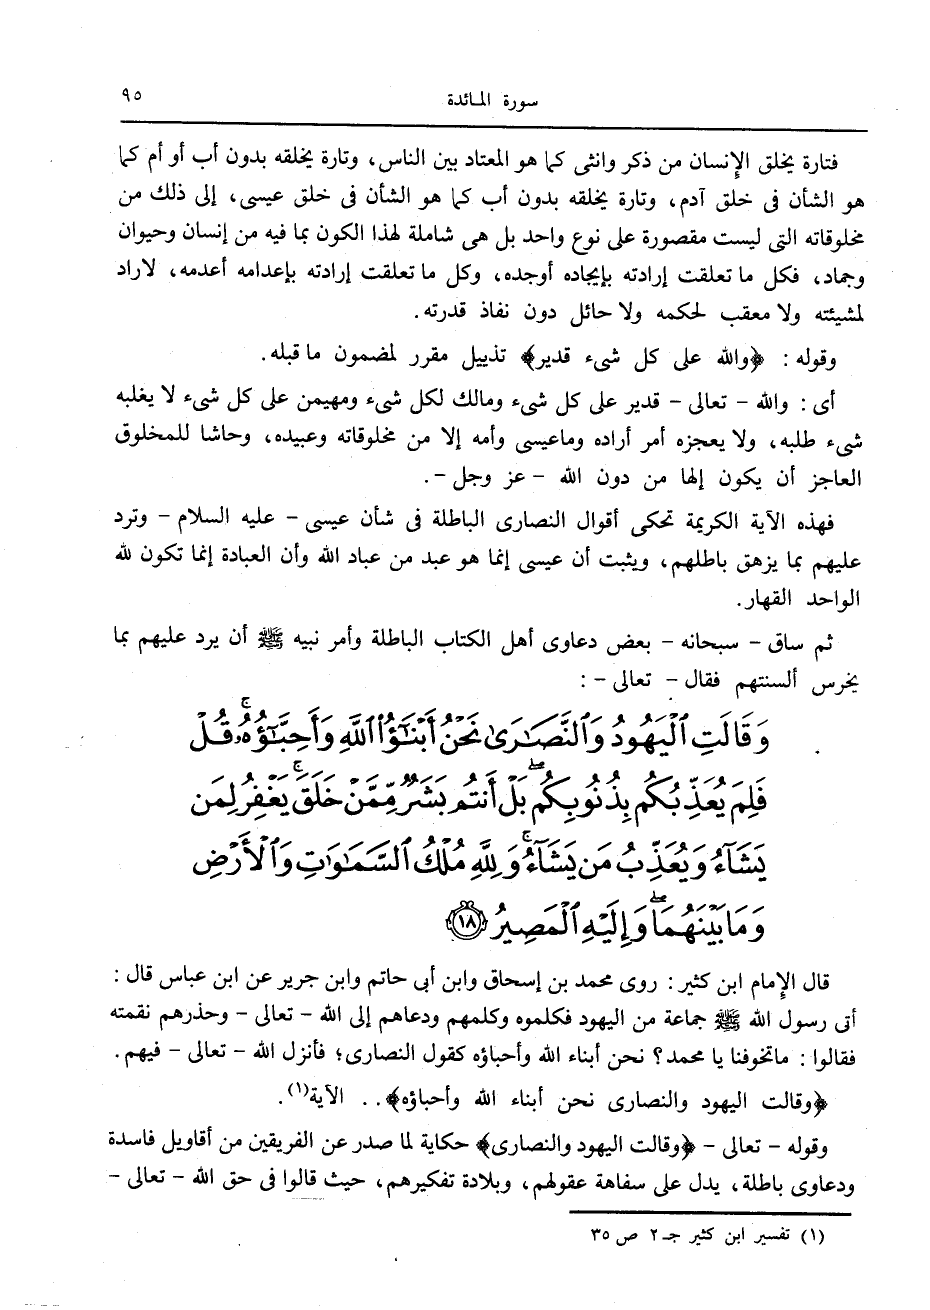 سورة المائدة ٩٥
فتارة يخلق الإنسان من ذكر وانثى كما هو المعتاد بين الناس، وتارة يخلقه بدون أب أو أم كما
هو الشأن فى خلق آدم، وتارة يخلقه بدون أب كما هو الشأن فى خلق عيسى، إلى ذلك من
مخلوقاته التى ليست مقصورة على نوع واحد بل هى شاملة لهذا الكون بما فيه من إنسان وحيوان
وجماد، فكل ما تعلقت إرادته بإيجاده أوجده، وكل ما تعلقت إرادته بإعدامه أعدمه، لاراد
لمشيئته ولا معقب لحكمه ولا حائل دون نفاذ قدرته.
وقوله : ﴿والله على كل شىء قدير﴾ تذييل مقرر لمضمون ما قبله.
أى : والله - تعالى - قدير على كل شىء ومالك لكل شىء ومهيمن على كل شىء لا يغلبه
شىء طلبه، ولا يعجزه أمر أراده وماعيسى وأمه إلا من مخلوقاته وعبيده، وحاشا للمخلوق
العاجز أن يكون إلها من دون الله - عز وجل -.
فهذه الآية الكريمة تحكى أقوال النصارى الباطلة فى شأن عيسى - عليه السلام - وترد
عليهم بما يزهق باطلهم، ويثبت أن عيسى إنما هو عبد من عباد الله وأن العبادة إنما تكون لله
الواحد القهار.
ثم ساق - سبحانه - بعض دعاوى أهل الكتاب الباطلة وأمر نبيه ﷺ أن يرد عليهم بما
يخرس ألسنتهم فقال - تعالى - :
وَقَالَتِ ٱلْيَهُودُ وَٱلنَّصَٰرَىٰ نَحْنُ أَبْنَٰٓؤُا۟ ٱللَّهِ وَأَحِبَّٰٓؤُهُۥ ۚ قُلْ
فَلِمَ يُعَذِّبُكُم بِذُنُوبِكُم ۖ بَلْ أَنتُم بَشَرٌ مِّمَّنْ خَلَقَ ۚ يَغْفِرُ لِمَن
يَشَآءُ وَيُعَذِّبُ مَن يَشَآءُ ۚ وَلِلَّهِ مُلْكُ ٱلسَّمَٰوَٰتِ وَٱلْأَرْضِ
وَمَا بَيْنَهُمَا ۖ وَإِلَيْهِ ٱلْمَصِيرُ ﴿١٨﴾
قال الإمام ابن كثير : روى محمد بن إسحاق وابن أبى حاتم وابن جرير عن ابن عباس قال :
أتى رسول الله ﷺ جماعة من اليهود فكلموه وكلمهم ودعاهم إلى الله - تعالى - وحذرهم نقمته
فقالوا : ماتخوفنا يا محمد؟ نحن أبناء الله وأحباؤه كقول النصارى؛ فأنزل الله - تعالى - فيهم.
﴿وقالت اليهود والنصارى نحن أبناء الله وأحباؤه﴾.. الآية(١).
وقوله - تعالى - ﴿وقالت اليهود والنصارى﴾ حكاية لما صدر عن الفريقين من أقاويل فاسدة
ودعاوى باطلة، يدل على سفاهة عقولهم، وبلادة تفكيرهم، حيث قالوا فى حق الله - تعالى -
(١) تفسير ابن كثير جـ٢ ص ٣٥